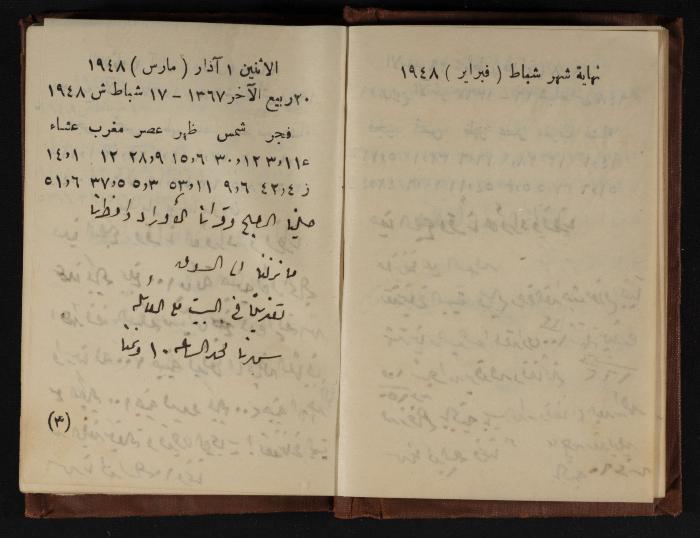 نهاية شهر شباط ( فبراير ) ١٩٤٨
الاثنين ١ آذار ( مارس ) ١٩٤٨
٢٠ ربيع الآخر ١٣٦٧ – ١٧ شباط ش ١٩٤٨
فجر شمس ظهر عصر مغرب عشاء
ع ١١و٣ ١٢و٣٠ ٦و١٥ ٩و٢٨ ١٢ ١و١٤
ز ٤و٤٢ ٦و٩ ١١و٥٣ ٣و٥ ٥و٣٧ ٦و٥١
صلينا الصبح وقرأنا الأوراد وافطرنا
ما نزلنا الى السوق
تغدينا في البيت مع العائلة
سهرنا لحد الساعه ١٠ ونمنا
(٣)